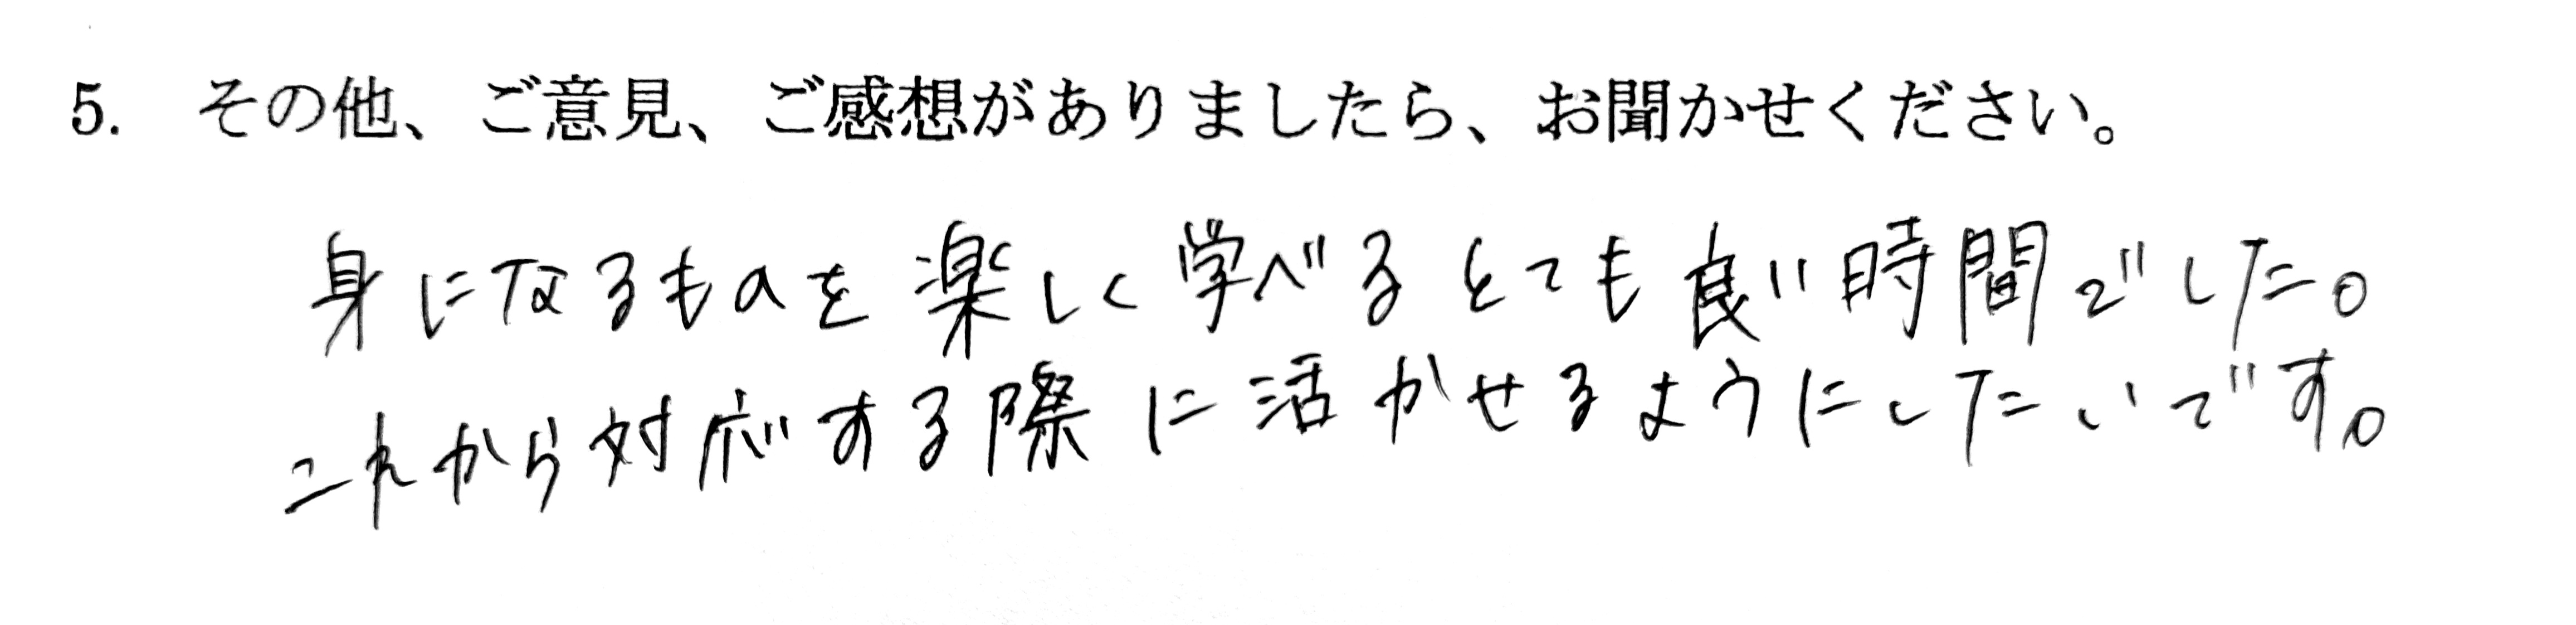 5. その他、ご意見、ご感想がありましたら、お聞かせください。
身になるものを楽しく学べるとても良い時間でした。
これから対応する際に活かせるようにしたいです。